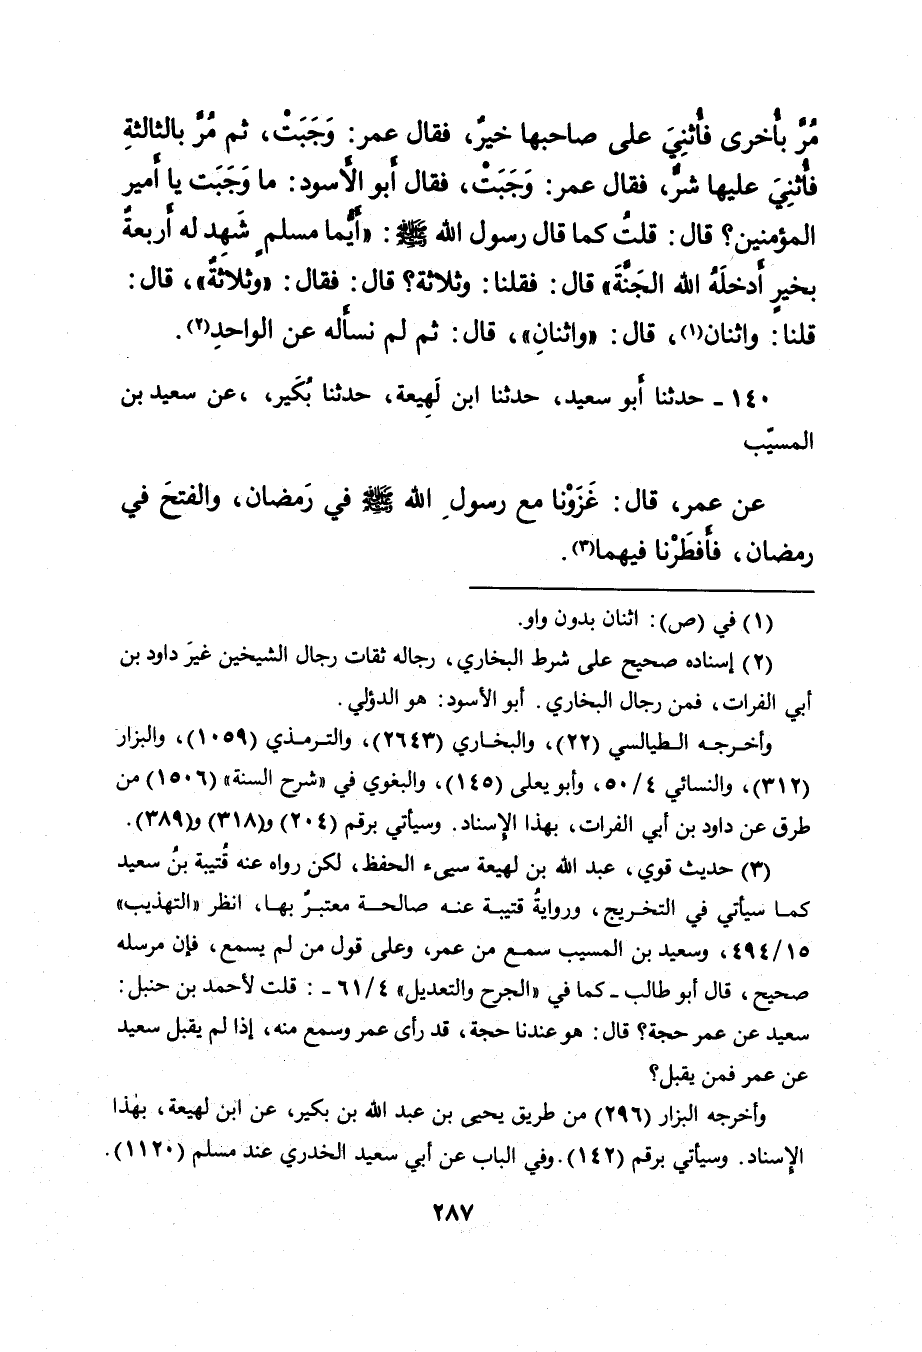 مُرَّ بأُخرى فأُثنِيَ على صاحبها خيرٌ، فقال عمر: وَجَبَتْ، ثم مُرَّ بالثالثةِ
فأُثنِيَ عليها شرٌّ، فقال عمر: وَجَبَتْ، فقال أَبو الأَسود: ما وَجَبَت يا أَمير
المؤمنين؟ قال: قلتُ كما قال رسول الله ﷺ: «أَيُّما مسلمٍ شَهِد له أَربعةٌ
بخيرٍ أَدخلَهُ الله الجَنَّةَ» قال: فقلنا: وثلاثة؟ قال: فقال: «وثلاثةٌ»، قال:
قلنا: واثنان(١)، قال: «واثنانِ»، قال: ثم لم نسأَله عن الواحدِ(٢).
١٤٠ ـ حدثنا أَبو سعيد، حدثنا ابن لَهِيعة، حدثنا بُكَير، ،عن سعيد بن
المسيّب
عن عمر، قال: غَزَوْنا مع رسولِ الله ﷺ في رَمضان، والفتحَ في
رمضان، فأَفطَرْنا فيهما(٣).
(١) في (ص): اثنان بدون واو.
(٢) إسناده صحيح على شرط البخاري، رجاله ثقات رجال الشيخين غيرَ داود بن
أبي الفرات، فمن رجال البخاري. أبو الأسود: هو الدؤلي.
وأخرجه الطيالسي (٢٢)، والبخاري (٢٦٤٣)، والترمذي (١٠٥٩)، والبزار
(٣١٢)، والنسائي ٥٠/٤، وأبو يعلى (١٤٥)، والبغوي في «شرح السنة» (١٥٠٦) من
طرق عن داود بن أبي الفرات، بهذا الإِسناد. وسيأتي برقم (٢٠٤) و(٣١٨) و(٣٨٩).
(٣) حديث قوي، عبد الله بن لهيعة سيىء الحفظ، لكن رواه عنه قُتيبة بنُ سعيد
كما سيأتي في التخريج، وروايةُ قتيبة عنه صالحة معتبرٌ بها، انظر «التهذيب»
٤٩٤/١٥، وسعيد بن المسيب سمع من عمر، وعلى قول من لم يسمع، فإن مرسله
صحيح، قال أبو طالب ـ كما في «الجرح والتعديل» ٦١/٤ ـ : قلت لأحمد بن حنبل:
سعيد عن عمر حجة؟ قال: هو عندنا حجة، قد رأى عمر وسمع منه، إذا لم يقبل سعيد
عن عمر فمن يقبل؟
وأخرجه البزار (٢٩٦) من طريق يحيى بن عبد الله بن بكير، عن ابن لهيعة، بهٰذا
الإِسناد. وسيأتي برقم (١٤٢). وفي الباب عن أبي سعيد الخدري عند مسلم (١١٢٠).
٢٨٧